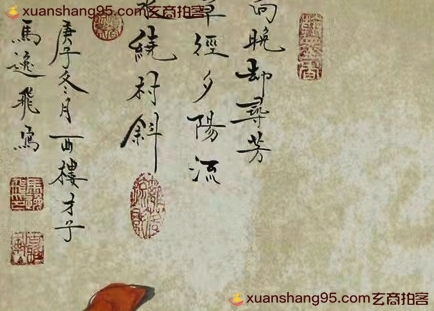 xuanshang95.com玄商拍客
向晚却尋芳
草徑夕陽流
水繞村斜
庚子冬月西樓才子
馬逸飛寫
xuanshang95.com玄商拍客